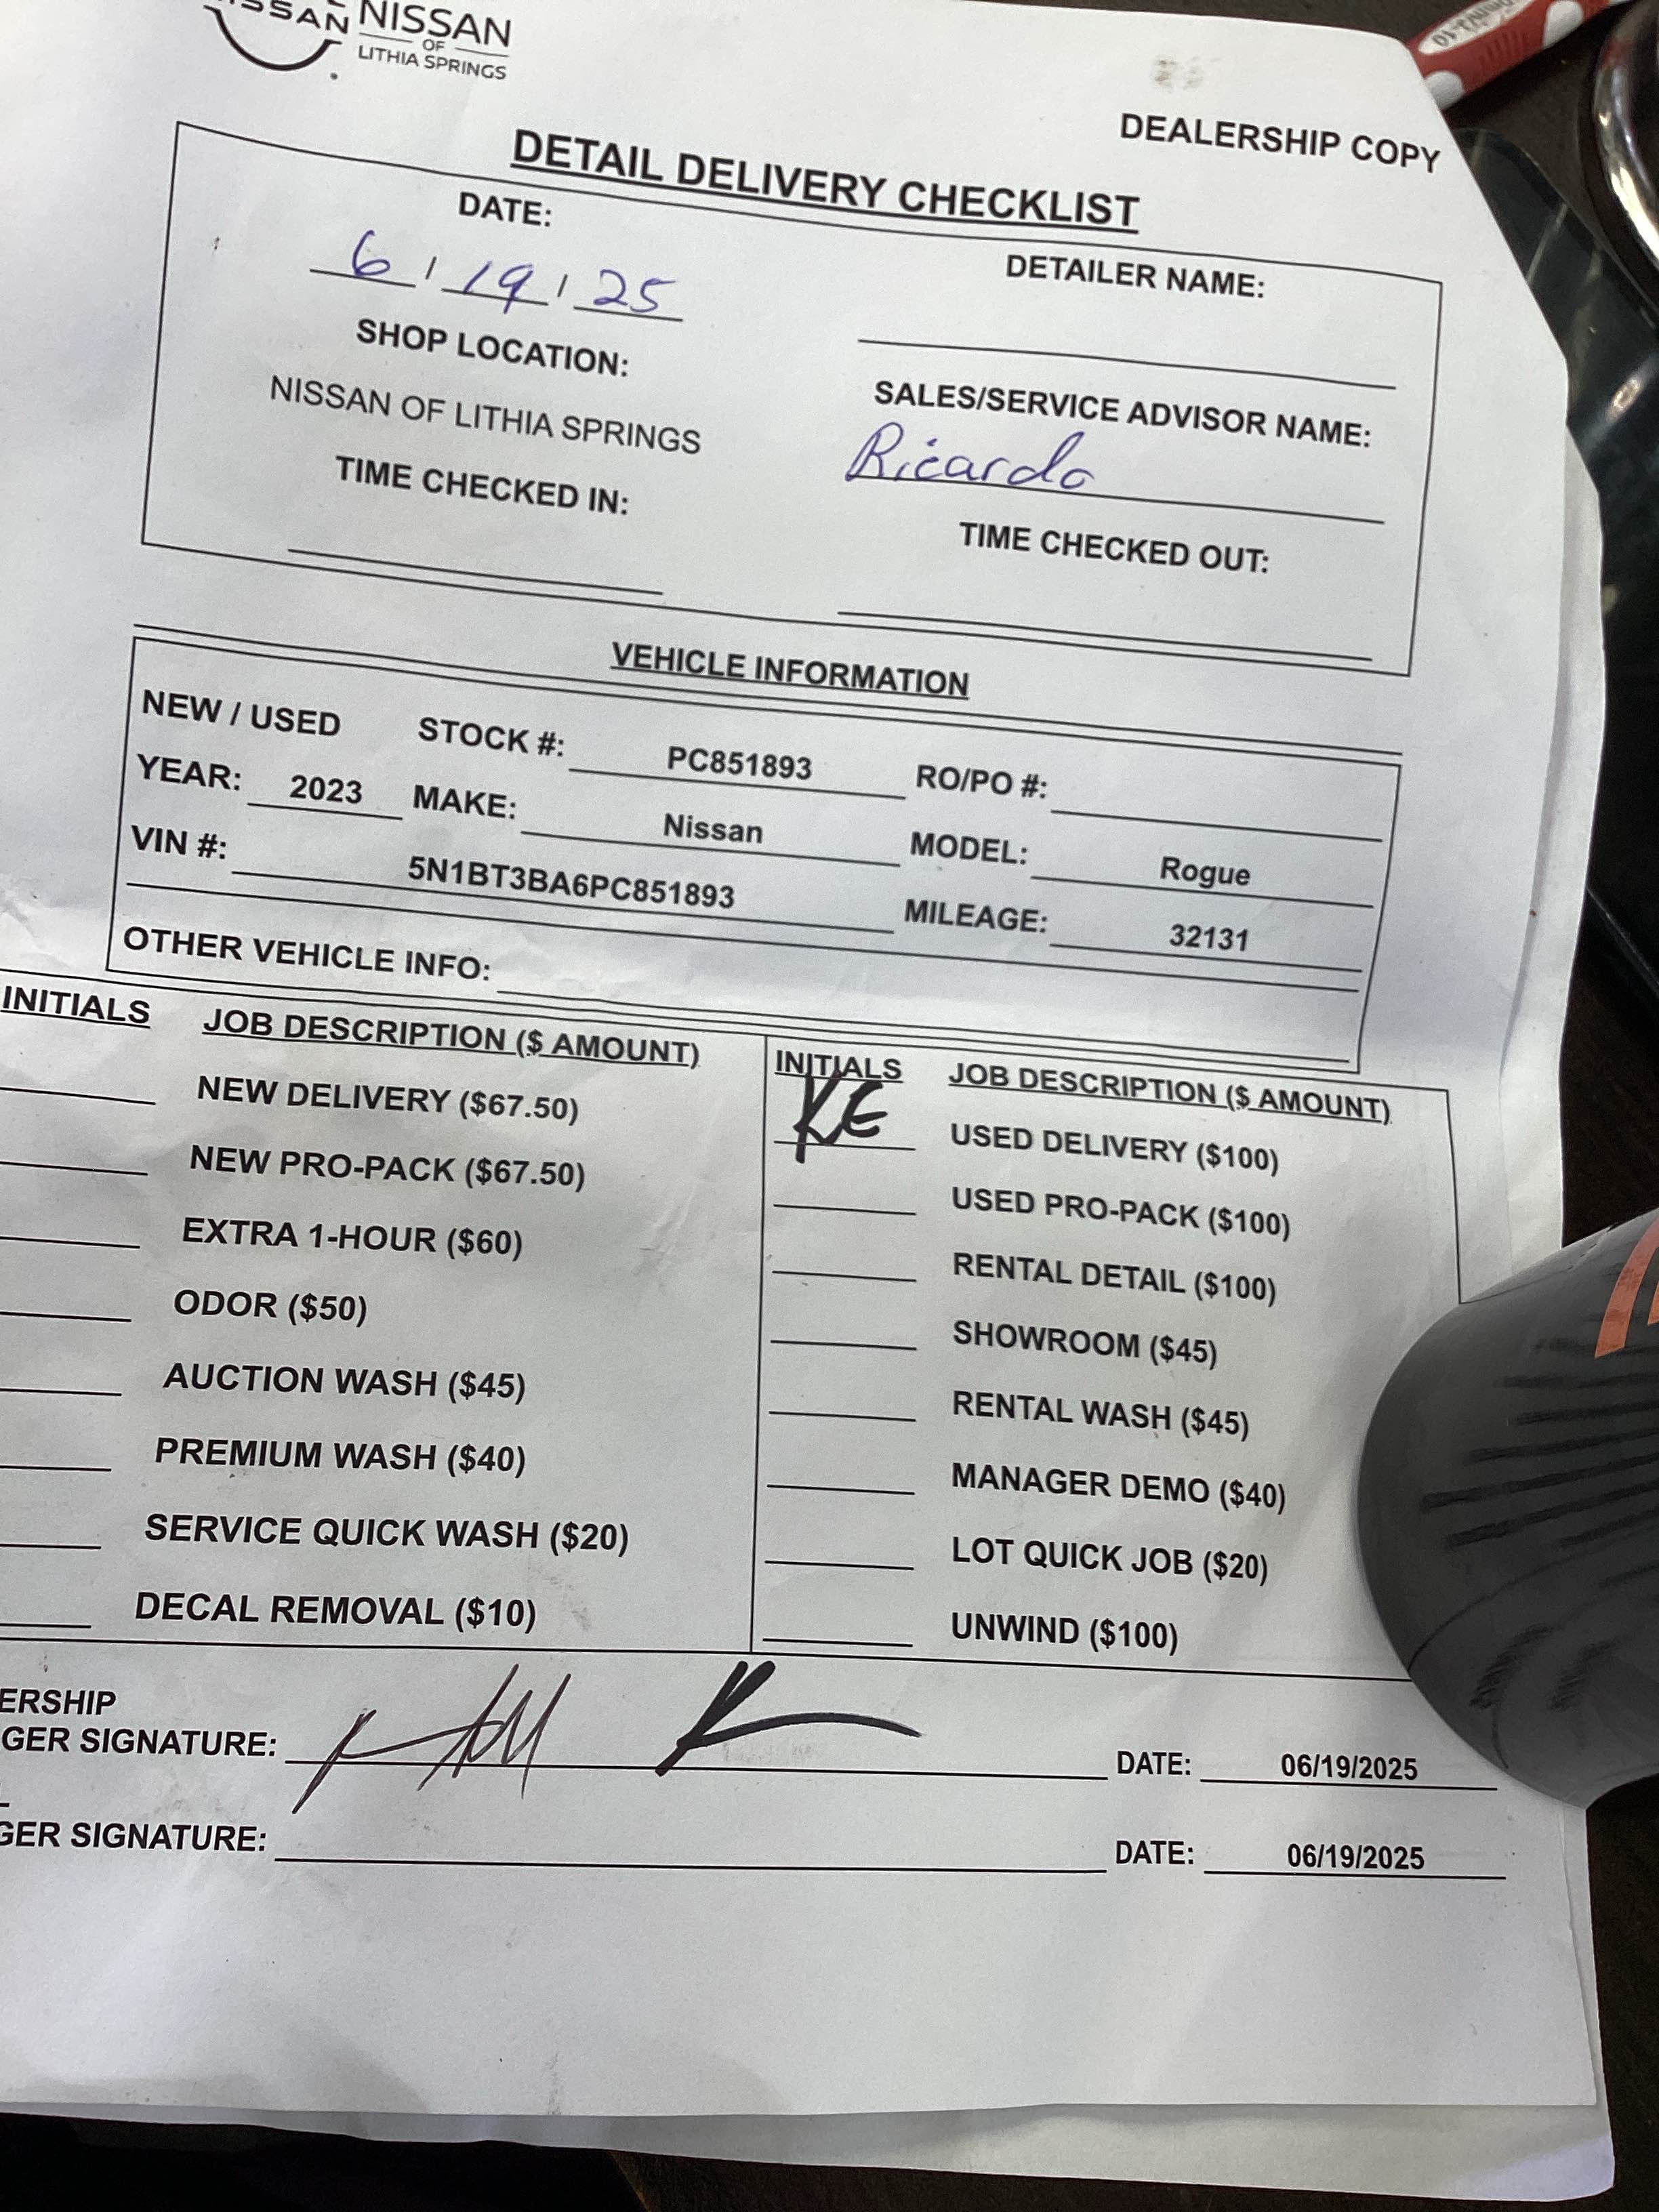 NISSAN
OF
LITHIA SPRINGS
DEALERSHIP COPY
DETAIL DELIVERY CHECKLIST
DATE:
6 / 19 / 25
DETAILER NAME:
SHOP LOCATION:
NISSAN OF LITHIA SPRINGS
SALES/SERVICE ADVISOR NAME:
Ricardo
TIME CHECKED IN:
TIME CHECKED OUT:
VEHICLE INFORMATION
NEW / USED STOCK #: PC851893 RO/PO #:
YEAR: 2023 MAKE: Nissan MODEL: Rogue
VIN #: 5N1BT3BA6PC851893 MILEAGE: 32131
OTHER VEHICLE INFO:
INITIALS JOB DESCRIPTION ($ AMOUNT)
NEW DELIVERY ($67.50)
NEW PRO-PACK ($67.50)
EXTRA 1-HOUR ($60)
ODOR ($50)
AUCTION WASH ($45)
PREMIUM WASH ($40)
SERVICE QUICK WASH ($20)
DECAL REMOVAL ($10)
INITIALS JOB DESCRIPTION ($ AMOUNT)
KE USED DELIVERY ($100)
USED PRO-PACK ($100)
RENTAL DETAIL ($100)
SHOWROOM ($45)
RENTAL WASH ($45)
MANAGER DEMO ($40)
LOT QUICK JOB ($20)
UNWIND ($100)
ERSHIP
GER SIGNATURE: DATE: 06/19/2025
GER SIGNATURE: DATE: 06/19/2025